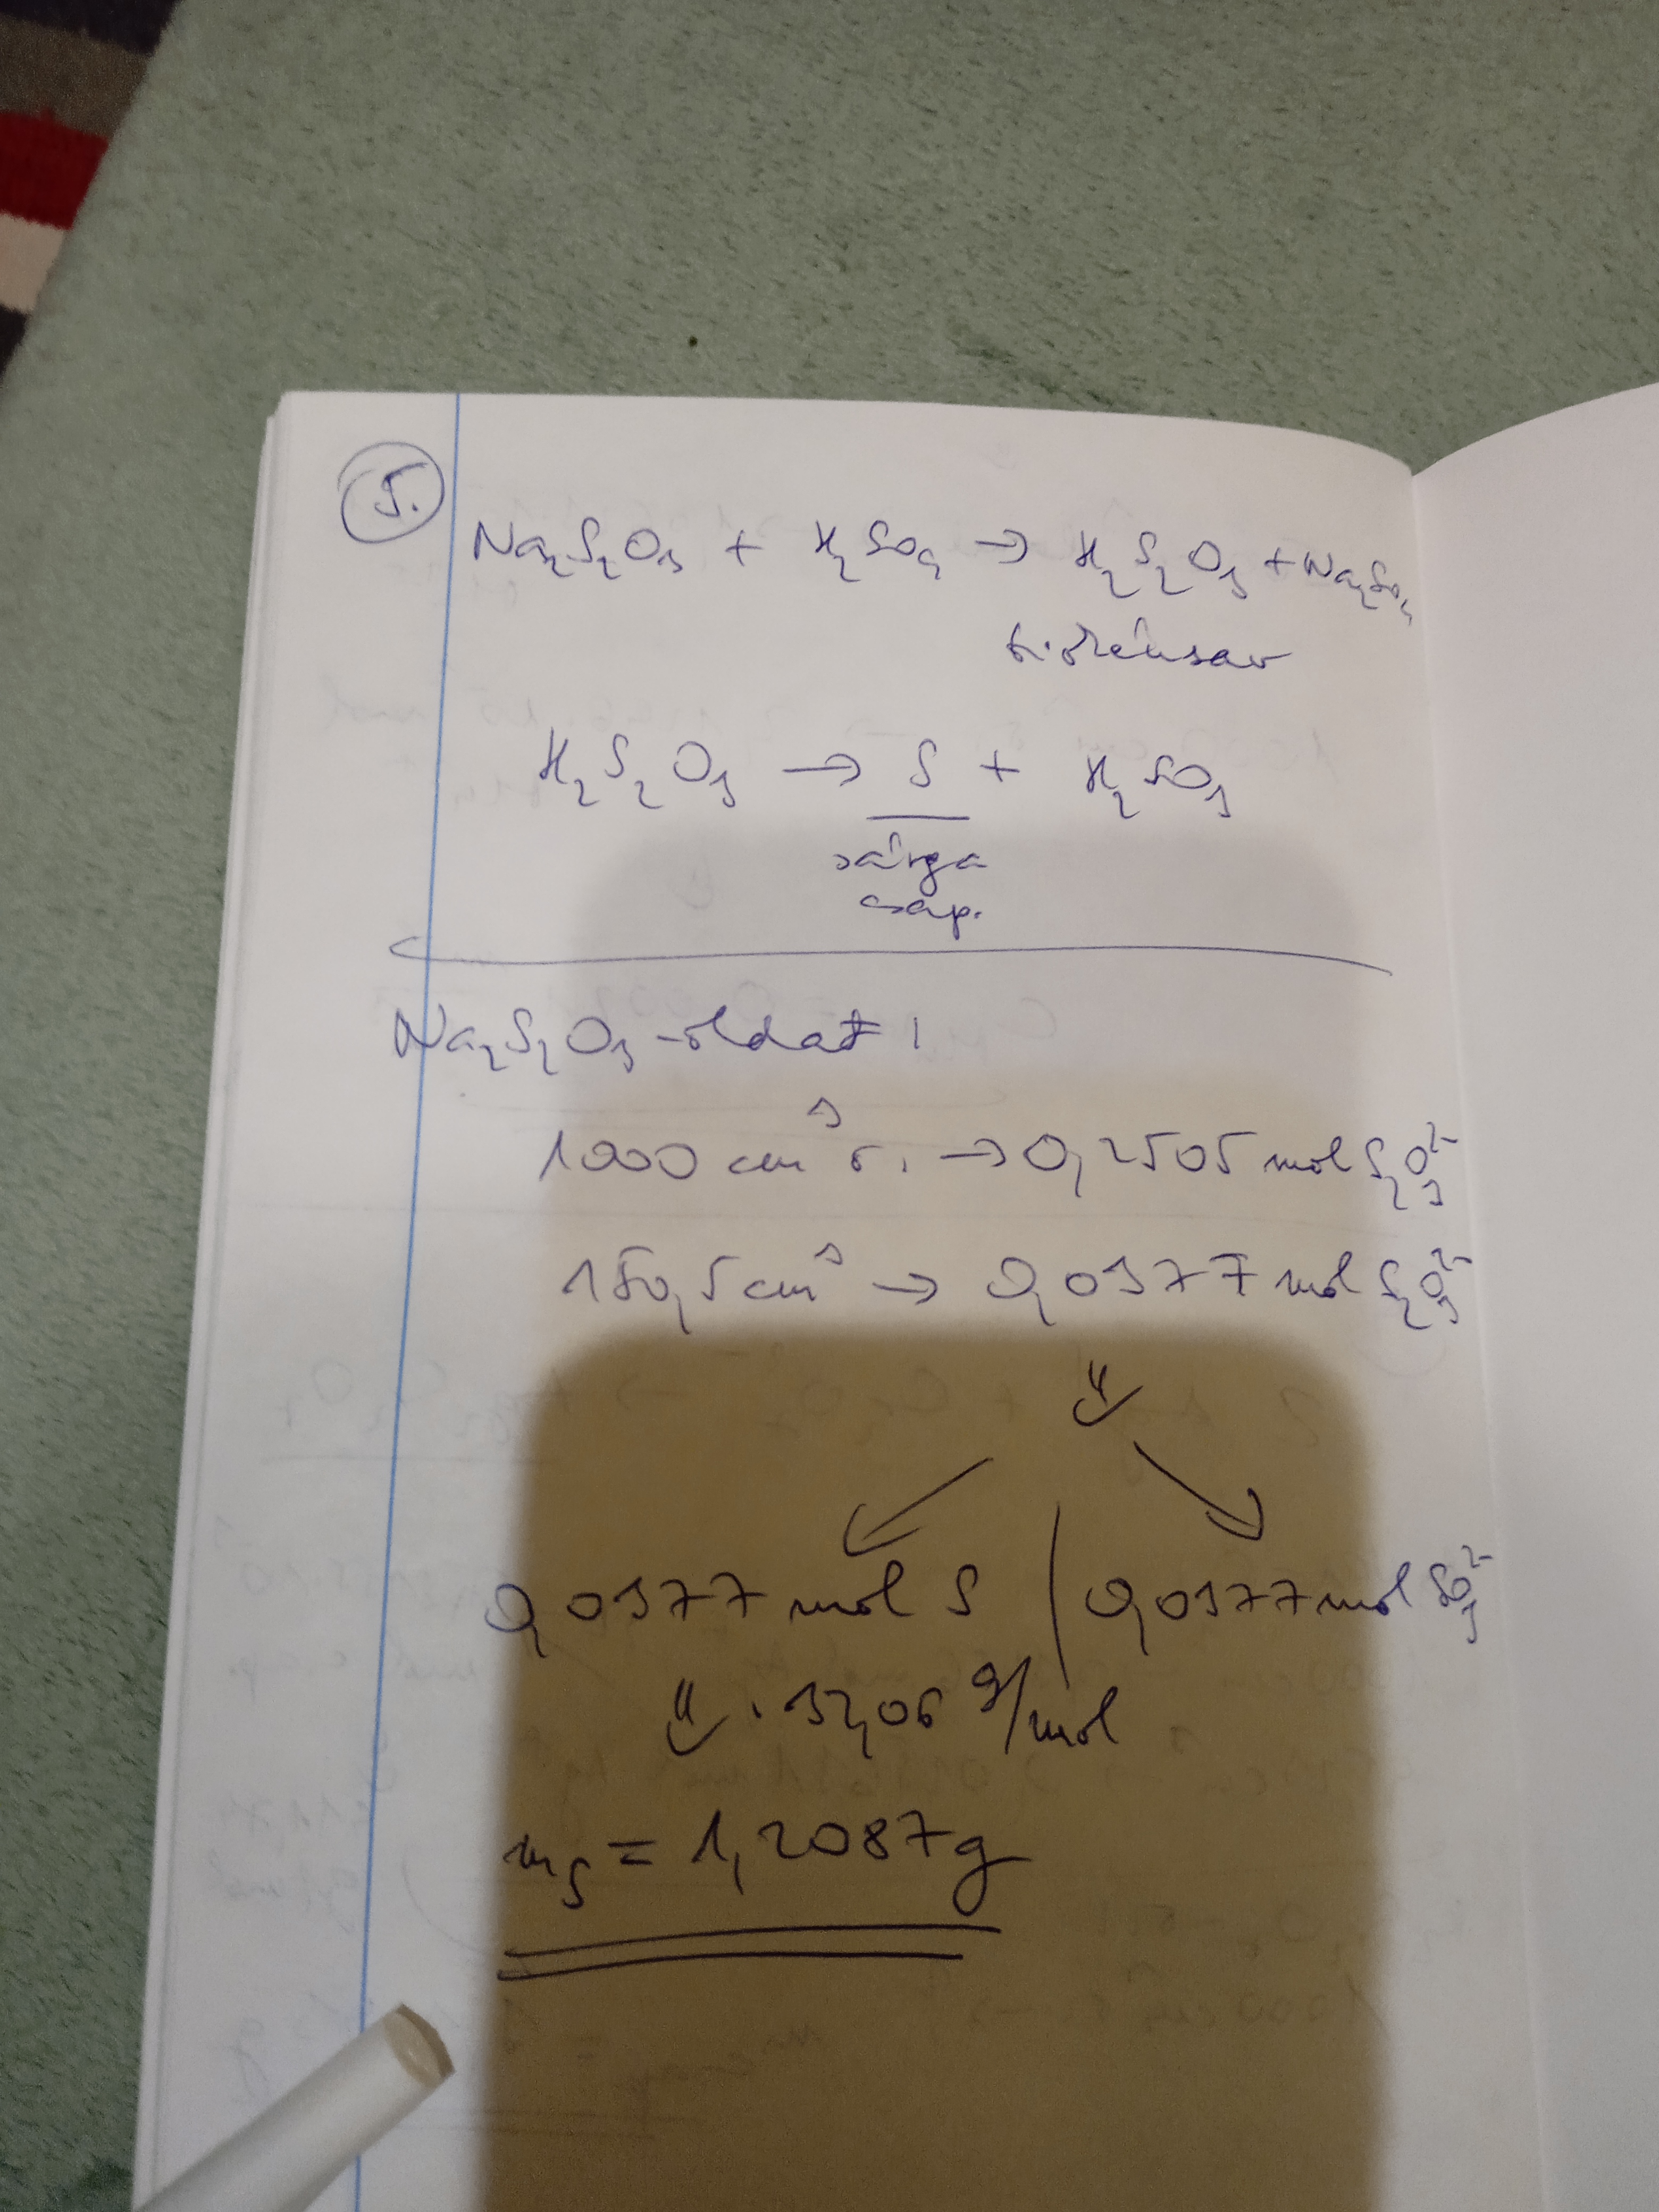 5.
Na₂S₂O₃ + H₂SO₄ → H₂S₂O₃ + Na₂SO₄
tiokénsav
H₂S₂O₃ → S + H₂SO₃
sárga
csap.
Na₂S₂O₃-oldat:
1000 cm³ o. → 0,2505 mol S₂O₃²⁻
150,5 cm³ → 0,0377 mol S₂O₃²⁻
⇓
0,0377 mol S | 0,0377 mol SO₃²⁻
⇓ · 32,06 g/mol
mₛ = 1,2087 g